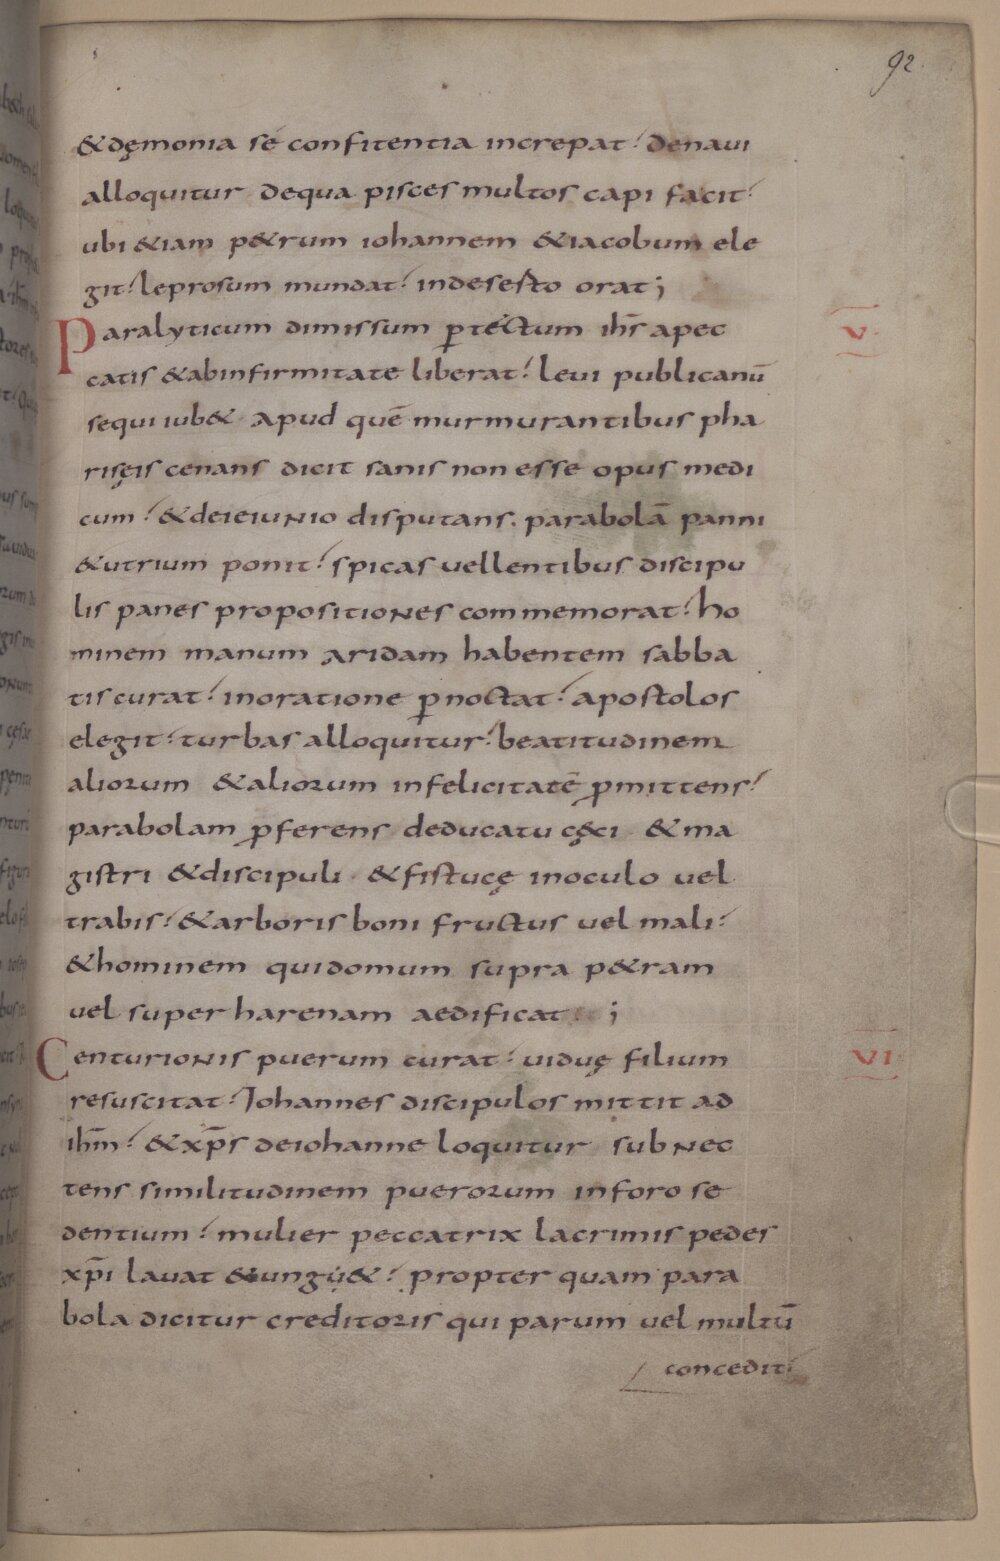 92
&dęmonia sé confitentia increpat; denaui
alloquitur dequa pisces multos capi facit;
ubi &iam p&rum iohannem &iacobum ele
git; leprosum mundat; indesesto orat;
Paralyticum dimissum ꝑtectum ihs̄ apec
catis &abinfirmitate liberat; leui publicanū
sequi iub& apud quē murmurantibus pha
risęis cenans dicit sanis non esse opus medi
cum; &deieiunio disputans. parabolā panni
&utrium ponit; spicas uellentibus discipu
lis panes propositiones commemorat; ho
minem manum aridam habentem sabba
tis curat; inoratione ꝑnoctat; apostolos
elegit; turbas alloquitur; beatitudinem
aliorum &aliorum infelicitatē ꝓmittens;
parabolam ꝓferens deducatu cęci &ma
gistri &discipuli · &fistucę inoculo uel
trabis; &arboris boni fructus uel mali;
&hominem quidomum supra p&ram
uel super harenam aedificat;
Centurionis puerum curat; uiduę filium
resuscitat; Iohannes discipulos mittit ad
ihm̄; &xp̄s deiohanne loquitur subnec
tens similitudinem puerorum inforo se
dentium; mulier peccatrix lacrimis pedes
xp̄i lauat &ungu&; propter quam para
bola dicitur creditoris qui parum uel multū
concedit;
V
VI